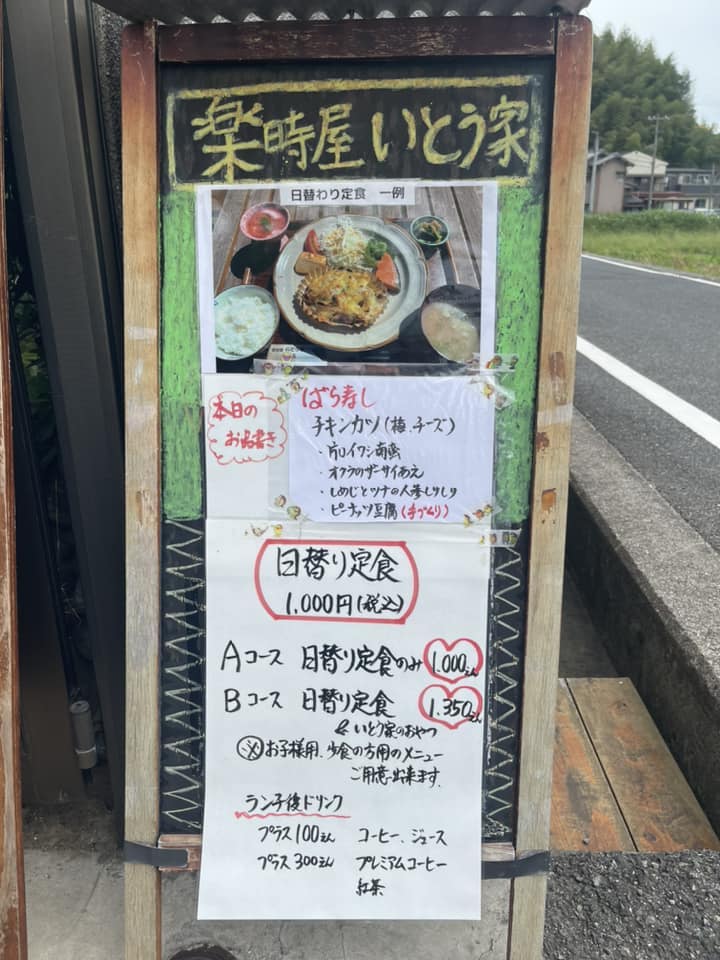 楽時屋 いとう家
日替わり定食 一例
本日の
お品書き
ばら寿し
チキンカツ(梅、チーズ)
・片口イワシ南蛮
・オクラのザーサイあえ
・しめじとツナの人参しりしり
・ピーナッツ豆腐(手づくり)
日替り定食
1,000円(税込)
Aコース 日替り定食のみ 1.000えん
Bコース 日替り定食 1.350えん
いとう家のおやつ
※お子様用、少食の方用のメニュー
ご用意出来ます.
ランチ後ドリンク
プラス100えん コーヒー、ジュース
プラス300えん プレミアムコーヒー
紅茶